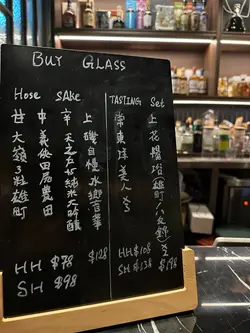 BUY GLASS
Hose SAke
甘 大嶺3粒雄町
中 義侠田尻農田
辛 天之 純米大吟醸
上 磯自慢水響音華
HH $78
SH $98
$128
TASTING Set
東珠美人
上 花陽浴雄町 八反錦
HH $108
SH $138
$198